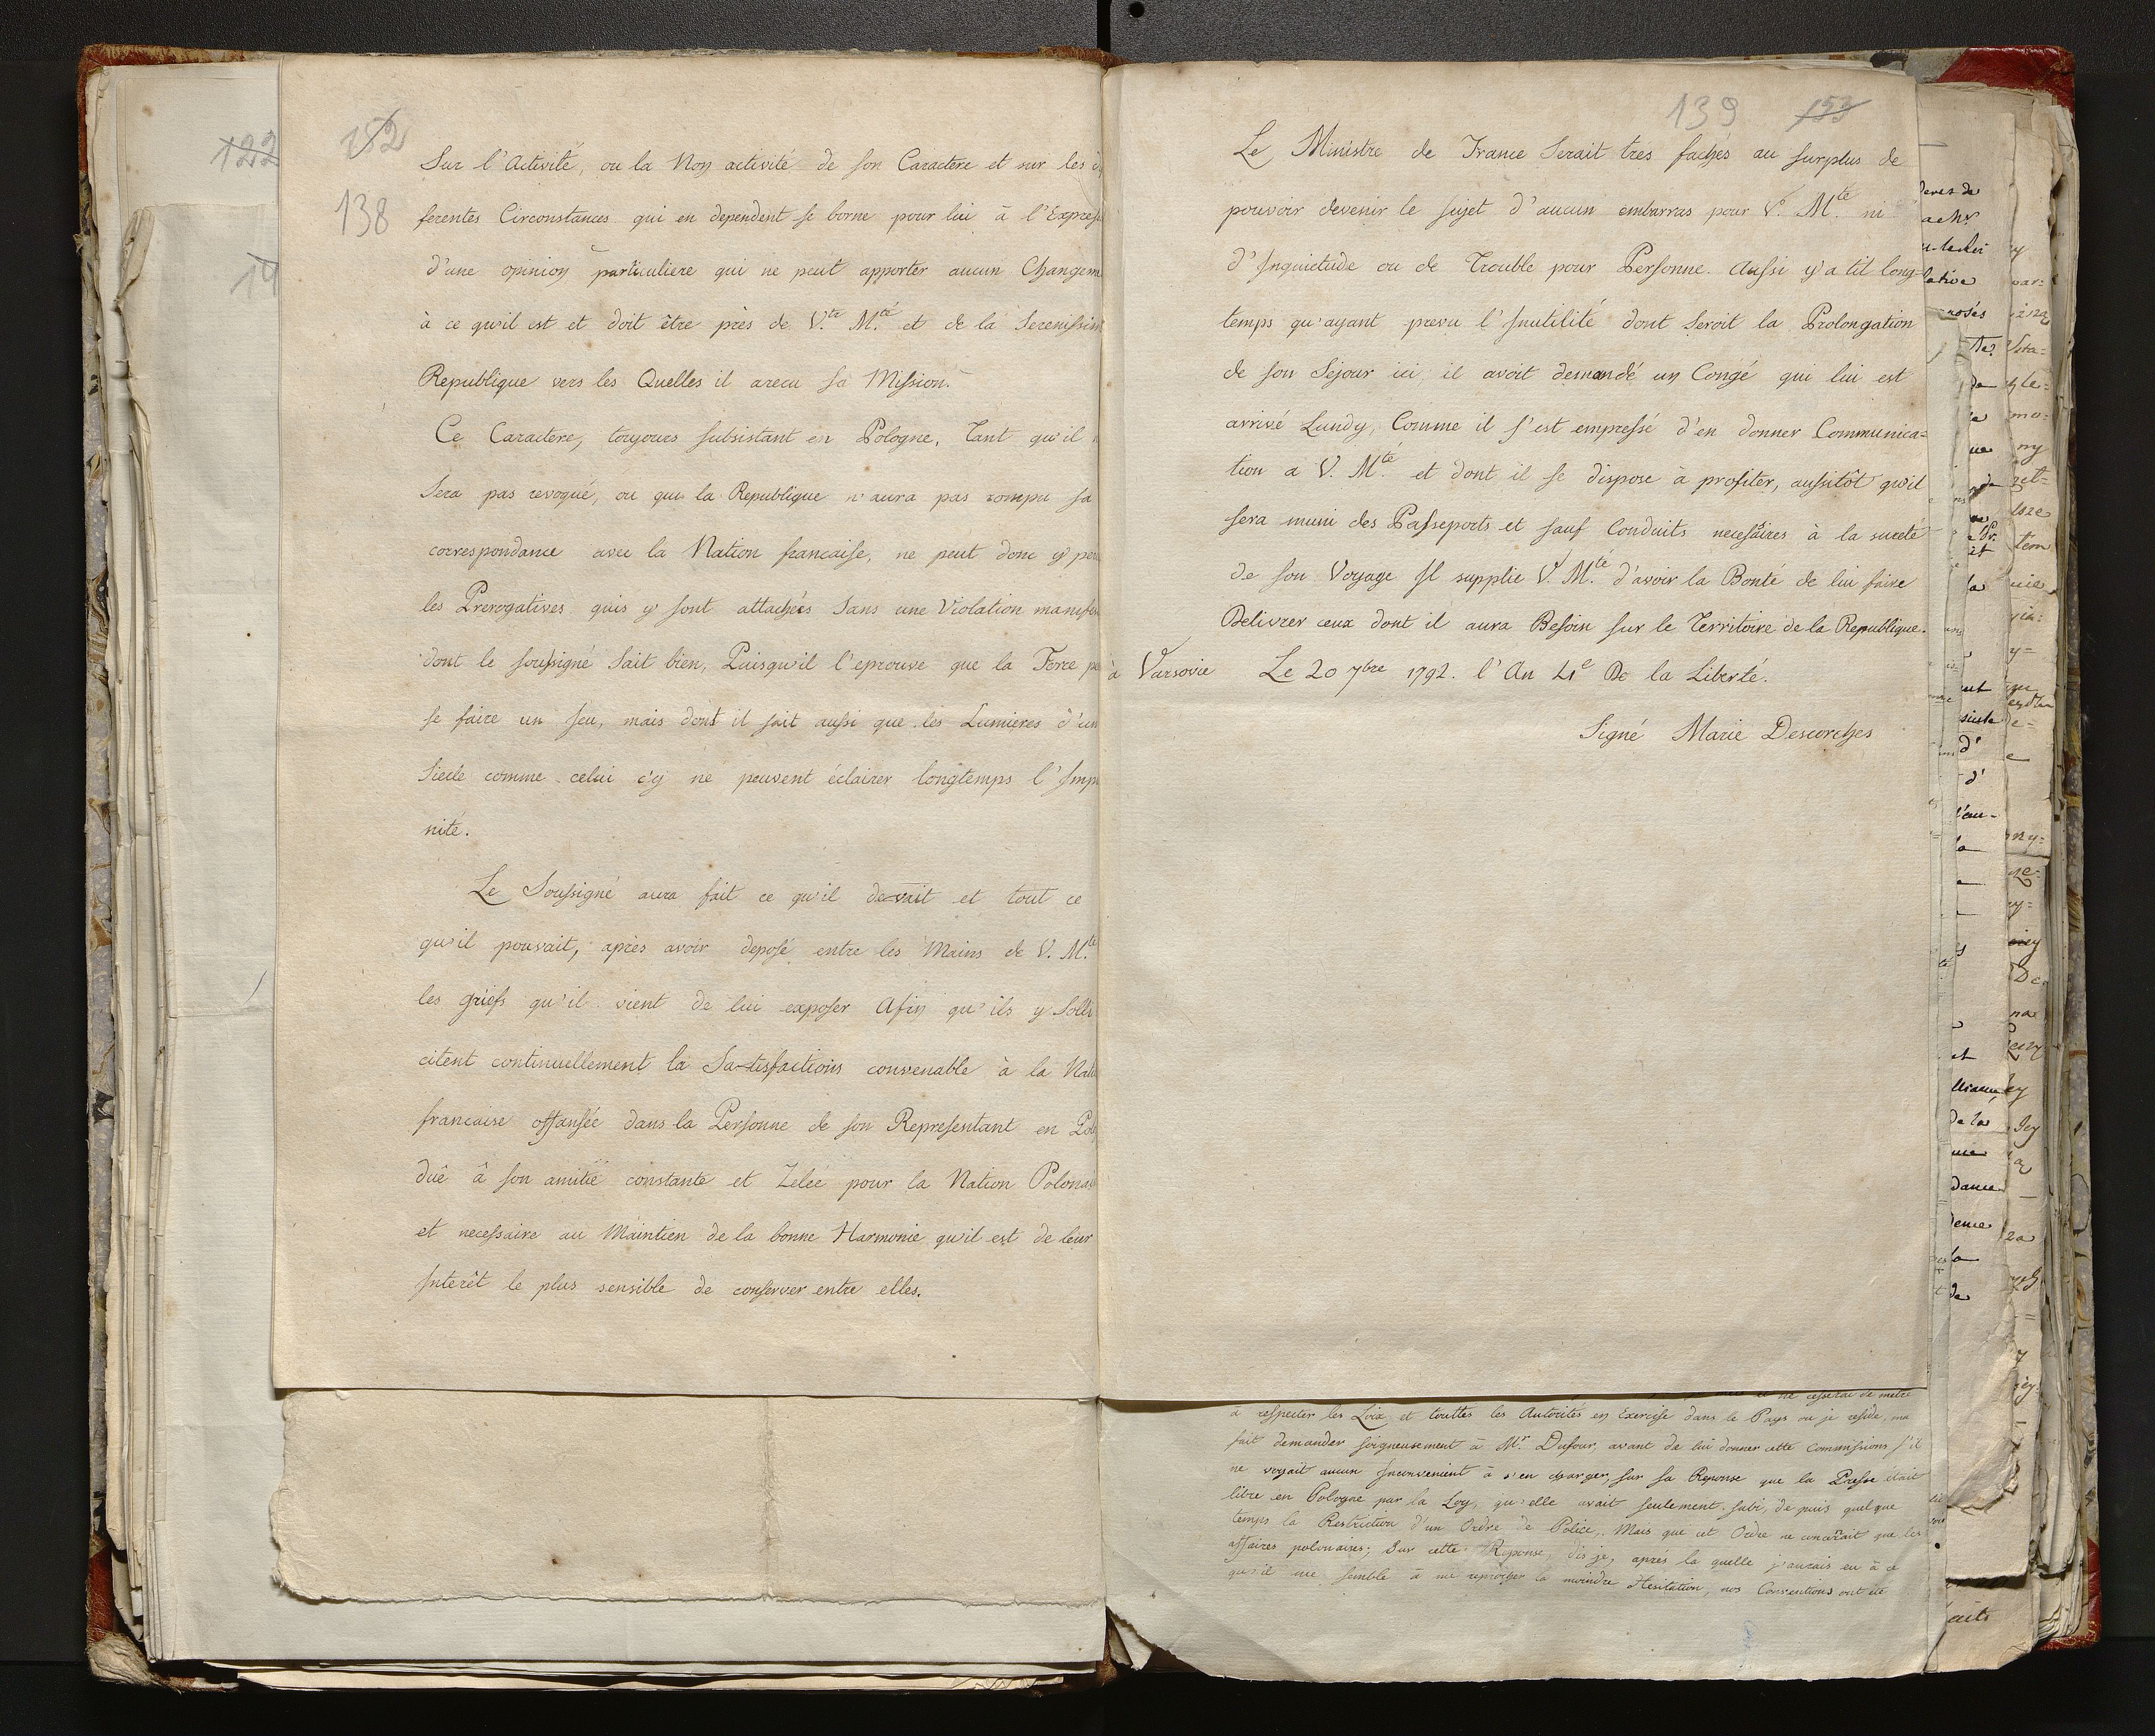 122
14
152
138
Sur l'Activité, ou la Non activité de son Caractere et sur les
ferentes Circonstances qui en dependent se borne pour lui à l'Expres
d'une opinion particuliere qui ne peut apporter aucun Changem
à ce qu'il est et doit être près de V.te M.té et de la Serenissim
Republique vers les Quelles il arecu sa Mission.
Ce Caractere, toujours subsistant en Pologne, Tant qu'il n
Sera pas revoqué, ou que la Republique n'aura pas rompu sa
correspondance avec la Nation francaise, ne peut donc y per
les Prerogatives quis y sont attachées Sans une Violation manifes
dont le soussigné Sait bien, Puisqu'il l'eprouve que la Force pe
se faire un Jeu, mais dont il sait aussi que les Lumieres d'un
Siecle comme celui c'y ne peuvent éclairer longtemps l'Impu
nité.
Le Soussigné aura fait ce qu'il devait et tout ce
qu'il pouvait, après avoir deposé entre les Mains de V. M.té
les griefs qu'il vient de lui exposer Afin qu'ils y Solli
citent continuellement la Satisfactions convenable à la Nati
francaise offansée dans la Personne de son Representant en Pol
duê â son amitié constante et Zelée pour la Nation Polonais
et necessaire au Maintien de la bonne Harmonie qu'il est de leur
Interêt le plus sensible de conserver entre elles.
139 153
Le Ministre de France Serait tres fachés au surplus de
pouvoir devenir le sujet d'aucun embarras pour V. M.té ni
d'Inquietude ou de Trouble pour Personne. Aussi y'a til long=
temps qu'ayant prevu l'Inutilité dont Seroit la Prolongation
de son Sejour ici, il avoit demandé un Congé qui lui est
arrivé Lundy, Comme il s'est empressé d'en donner Communica=
tion a V. M.té et dont il se dispose à profiter, aussitôt qu'il
sera muni des Passeports et sauf Conduits necessaires à la sureté
de son Voyage Il supplie V. M.té d'avoir la Bonté de lui faire
Delivrer ceux dont il aura Besoin sur le Territoire de la Republique.
à Varsovie Le 20 7bre 1792. l'An 4e De la Liberté.
Signé Marie Descorches
ne cesserai de metre
à respecter les Loix et touttes les Autorités en Exercise dans le Pays ou je reside, ma
fait demander soigneusement à Mr. Dufour, avant de lui donner cette Commissions s'il
ne voyait aucun Inconvenient à s'en charger, sur sa Reponse que la Presse était
libre en Pologne par la Loy, qu'elle avait seulement subi, de puis quelque
temps la Restriction d'un Ordre de Police, Mais que cet Ordre ne concernait que les
affaires polonaises; Sur cette Reponse, dis je, aprés la quelle j'aurais eu à ce
qu'il me semble à me reprocher la moindre Hesitation, nos Conventions ont été